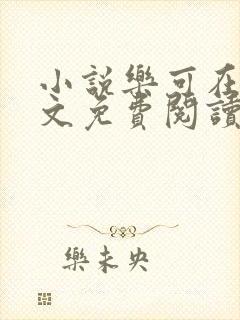 小説樂可在
文免費閱讀
樂未央